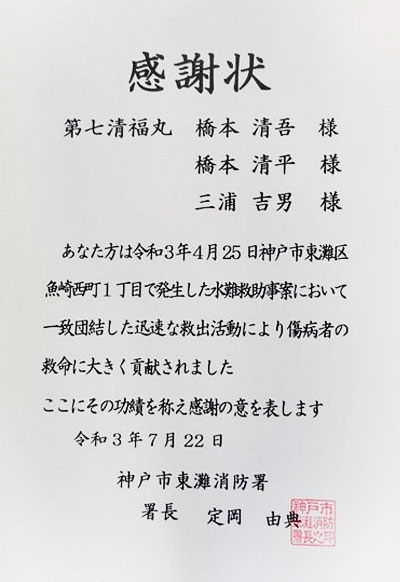 感謝状
第七清福丸 橋本 清吾 様
橋本 清平 様
三浦 吉男 様
あなた方は令和3年4月25日神戸市東灘区
魚崎西町1丁目で発生した水難救助事案において
一致団結した迅速な救出活動により傷病者の
救命に大きく貢献されました
ここにその功績を称え感謝の意を表します
令和3年7月22日
神戸市東灘消防署
署長 定岡 由典
神戸市
東灘消防
署長之印